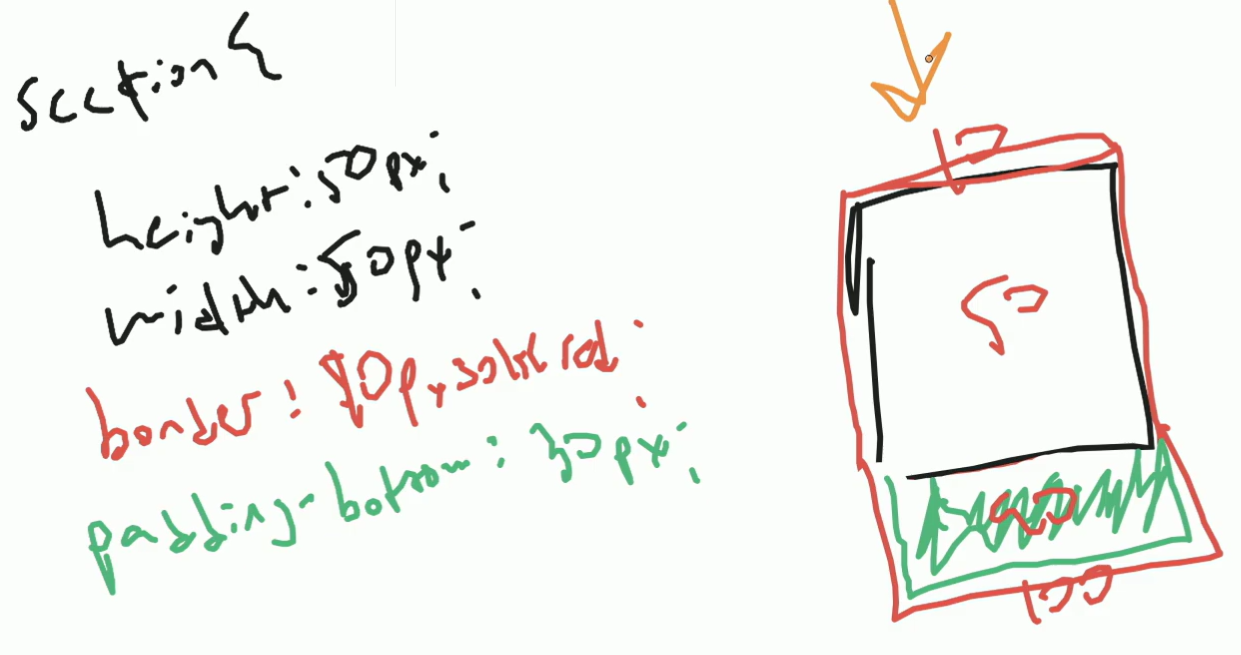 section {
height: 50px;
width: 50px;
border: 10px solid red;
padding-bottom: 30px;
10
50
100